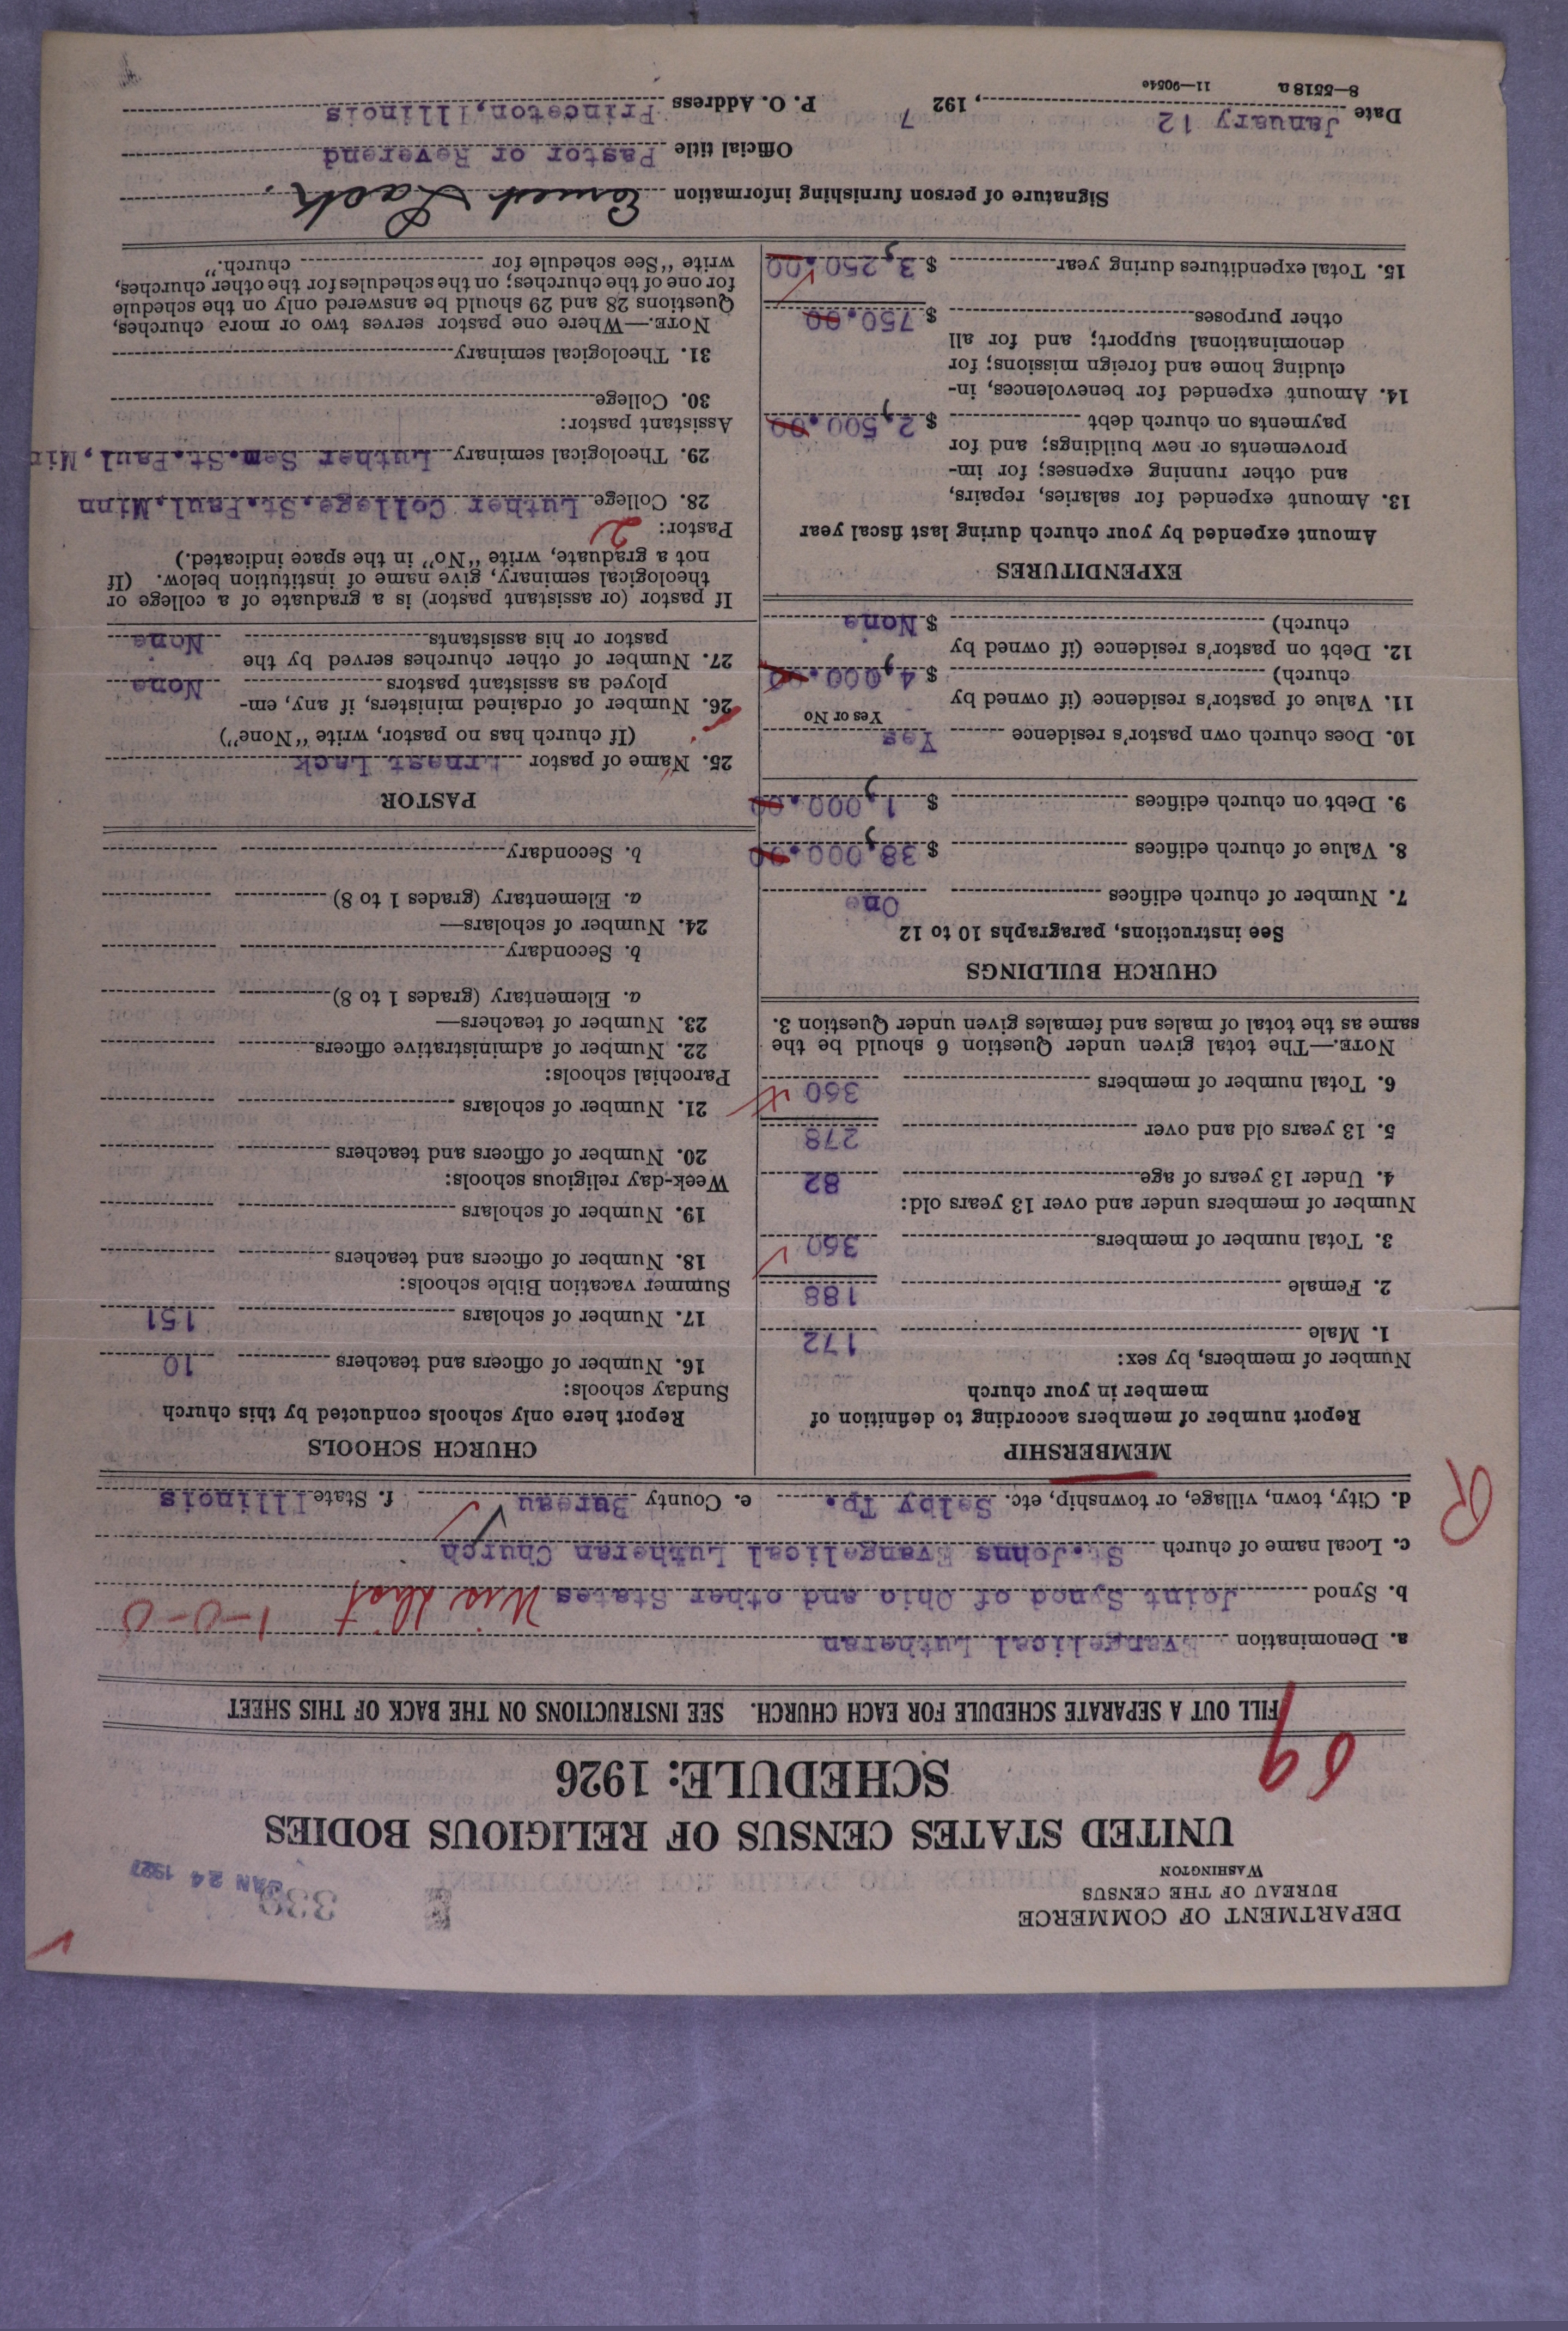 DEPARTMENT OF COMMERCE
BUREAU OF THE CENSUS
WASHINGTON
339
JAN 24 1927
UNITED STATES CENSUS OF RELIGIOUS BODIES
SCHEDULE: 1926
69
FILL OUT A SEPARATE SCHEDULE FOR EACH CHURCH. SEE INSTRUCTIONS ON THE BACK OF THIS SHEET
a. Denomination Evangelical Lutheran
1-0-0
b. Synod Joint Synod of Ohio and other States
c. Local name of church St.Johns Evangelical Lutheran Church
d. City, town, village, or township, etc. Selby Tp. e. County Bureau f. State Illinois
R
MEMBERSHIP
Report number of members according to definition of
member in your church
Number of members, by sex:
1. Male 172
2. Female 188
3. Total number of members 360
Number of members under and over 13 years old:
4. Under 13 years of age 82
5. 13 years old and over 278
6. Total number of members 360
NOTE.—The total given under Question 6 should be the
same as the total of males and females given under Question 3.
CHURCH BUILDINGS
See instructions, paragraphs 10 to 12
7. Number of church edifices One
8. Value of church edifices $ 38,000.00
9. Debt on church edifices $ 1,000.00
10. Does church own pastor's residence Yes
Yes or No
11. Value of pastor's residence (if owned by
church) $ 4,000.00
12. Debt on pastor's residence (if owned by
church) $ None
EXPENDITURES
Amount expended by your church during last fiscal year
13. Amount expended for salaries, repairs,
and other running expenses; for im-
provements or new buildings; and for
payments on church debt $ 2,500.00
14. Amount expended for benevolences, in-
cluding home and foreign missions; for
denominational support; and for all
other purposes $ 750.00
15. Total expenditures during year $ 3,250.00
CHURCH SCHOOLS
Report here only schools conducted by this church
Sunday schools:
16. Number of officers and teachers 10
17. Number of scholars 151
Summer vacation Bible schools:
18. Number of officers and teachers
19. Number of scholars
Week-day religious schools:
20. Number of officers and teachers
21. Number of scholars
Parochial schools:
22. Number of administrative officers
23. Number of teachers—
a. Elementary (grades 1 to 8)
b. Secondary
24. Number of scholars—
a. Elementary (grades 1 to 8)
b. Secondary
PASTOR
25. Name of pastor Ernest Lack
(If church has no pastor, write "None")
26. Number of ordained ministers, if any, em-
ployed as assistant pastors None
27. Number of other churches served by the
pastor or his assistants None
If pastor (or assistant pastor) is a graduate of a college or
theological seminary, give name of institution below. (If
not a graduate, write "No" in the space indicated.)
Pastor: 2
28. College Luther College.St.Paul.Minn
29. Theological seminary Luther Sem.St.Paul,Min
Assistant pastor:
30. College
31. Theological seminary
NOTE.—Where one pastor serves two or more churches,
Questions 28 and 29 should be answered only on the schedule
for one of the churches; on the schedules for the other churches,
write "See schedule for church."
Signature of person furnishing information Ernest Lack.
Official title Pastor or Reverend
Date January 12, 1927 P. O. Address Princeton,Illinois
8—5518 a 11—9054c